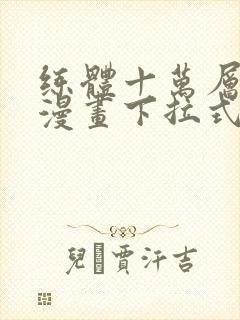 练體十萬層
漫畫下拉式
兒 賈汗吉